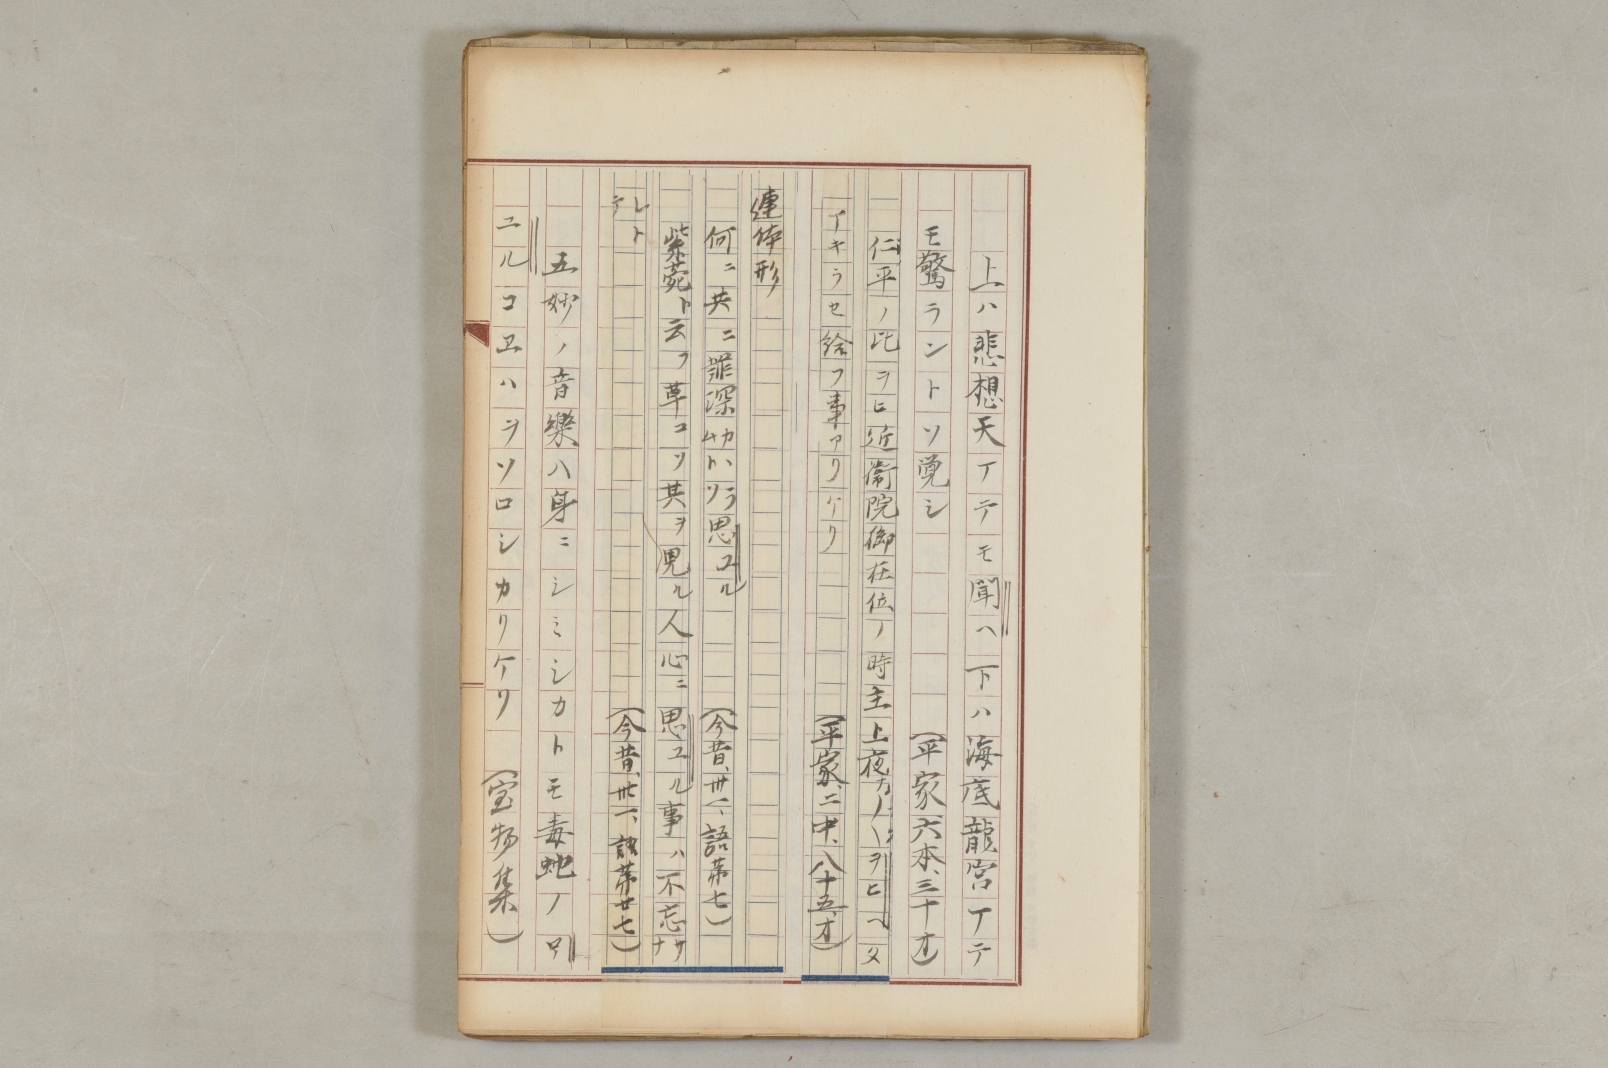 上ハ悲想天マテモ聞ヘ下ハ海底龍宮マテ
モ驚ランドソ覚シ（平家六本、三十オ）
仁平ノ比ヲヒ近衛院御在位ノ時主上夜ナ〱ヲヒヘタ
マキラセ給フ事アリケリ（平家、二中、八十五、オ）
連体形
何ニ共ニ罪深カラムトソ思ユル（今昔、卅一、語第七）
紫菀ト云フ草コソ其ヲ見ル人心ニ思ユル事ハ不忘サナ
レトテ（今昔、卅一、語第廿七）
五妙ノ音樂ハ身ニシミシカトモ毒蛇ノ吼
ユルコヱハヲソロシカリケリ（宝物集）